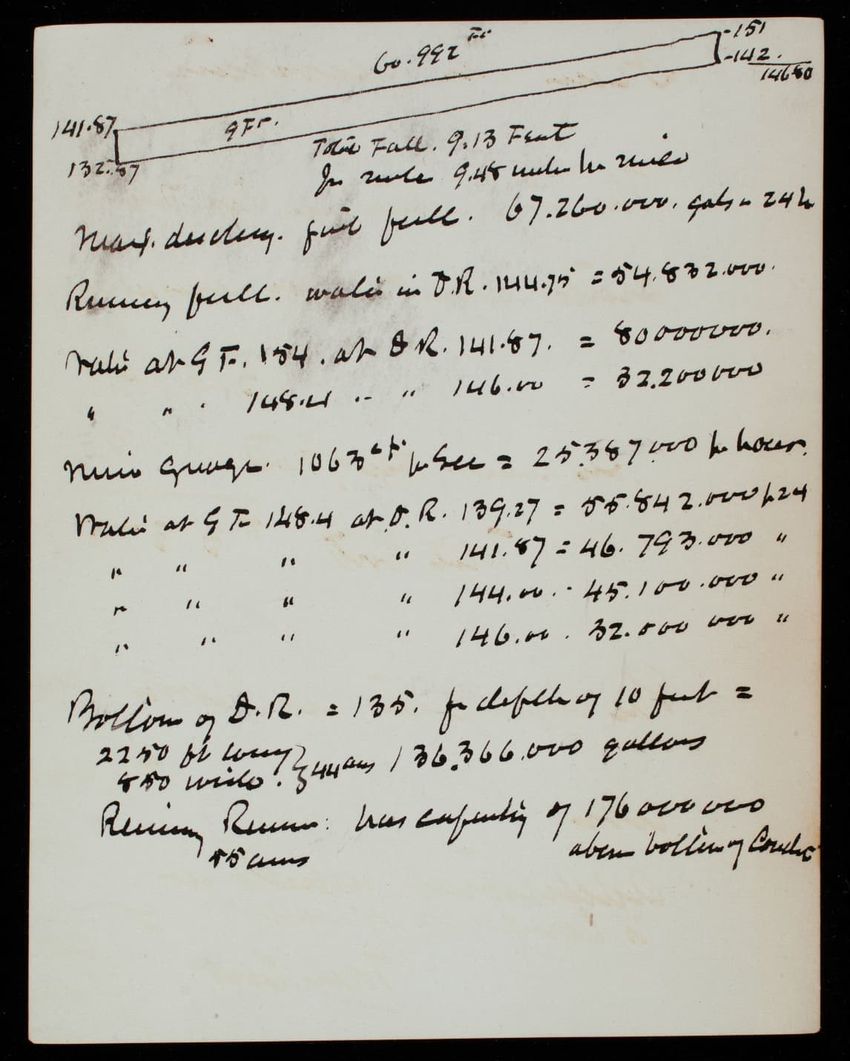 60.992 Ft
-151
-142.
14680
141.87
9 Ft.
132.87
Total Fall. 9.13 Feet
9.48 inches per mile
Max. full. 67.260.000. gals in 24 h
Running full. water in D.R. 144.75 = 54.832.000.
Water at G F. 154. at D R. 141.87. = 80000000.
" " . 148.4 .. " 146.00 = 32.200000
106 3 cft pr Sec = 25.387.000 pr hours.
Water at G F 148.4 at D. R. 139.27 = 55.842.000 p 24
" " " " 141.87 = 46.793.000 "
" " " " 144.00 . 45.100.000 "
" " " " 146.00 . 32.500 000 "
Bottom of D.R. = 135. for depth of 10 feet =
2250 ft long } 44 acres 136.366.000 gallons
850 wide.
has capacity of 176000000
55 acres above bottom of Conduit